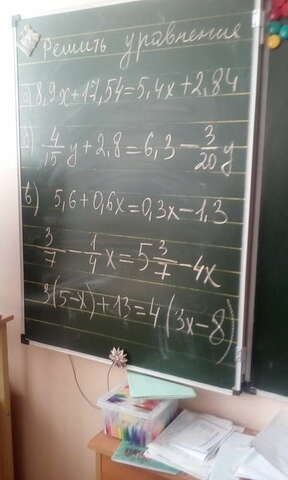 Решить уравнения
а) 8,9x+17,54=5,4x+2,84
б) 4/15 y+2,8=6,3-3/20 y
в) 5,6+0,6x=0,3x-1,3
3/7-1/4 x=5 3/7-4x
3(5-x)+13=4(3x-8)